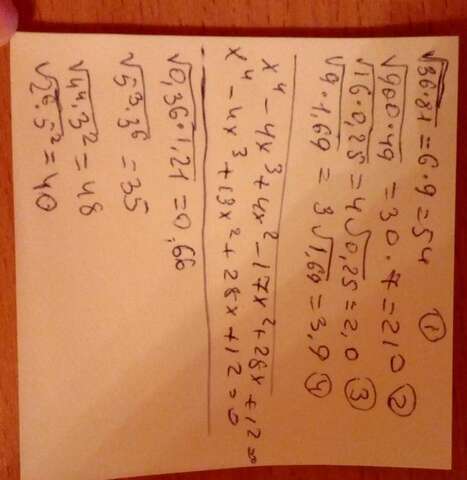 √36·81 = 6·9 = 54 ①
√900·49 = 30·7 = 210 ②
√16·0,25 = 4√0,25 = 2,0 ③
√9·1,69 = 3√1,69 = 3,9 ④
x⁴ - 4x³ + 4x² - 17x² + 28x + 12 = 0
x⁴ - 4x³ + 13x² + 28x + 12 = 0
√0,36·1,21 = 0,66
√5³·3⁶ = 35
√4⁴·3² = 48
√2⁶·5² = 40